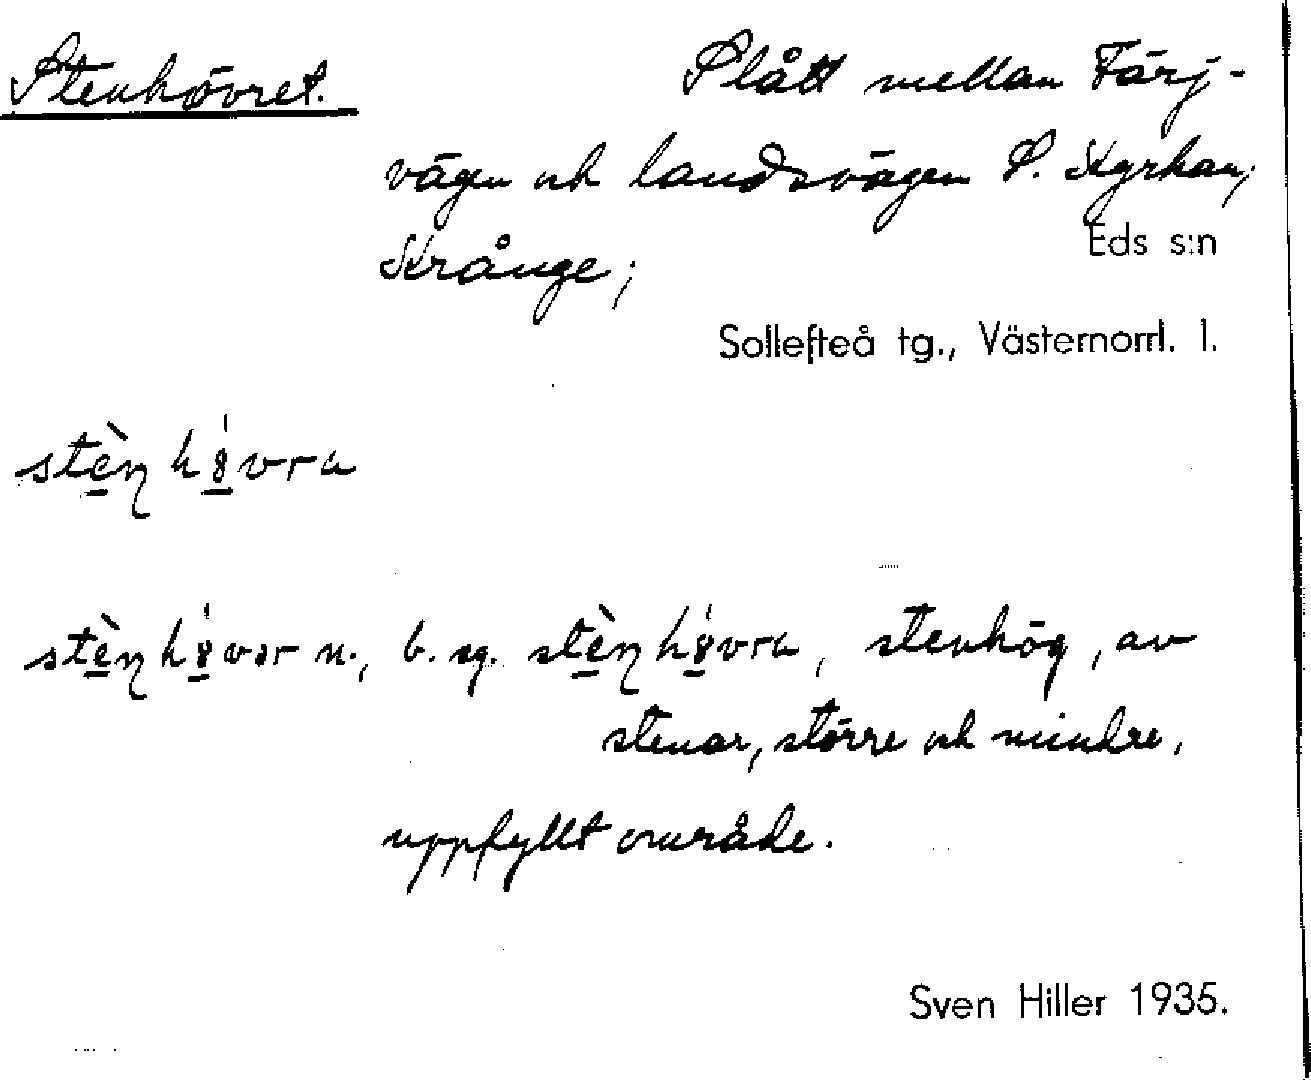 Stenhövret. Slått mellan Färj-
vägen och landsvägen S. Kyrkan,
Krånge;
Eds s:n
Sollefteå tg., Västernorrl. l.
stèn hȯ́vra
stèn hȯ́vər n., b. sg. stèn hȯ́vra, stenhög, av
stenar, större och mindre,
uppfyllt område.
Sven Hiller 1935.